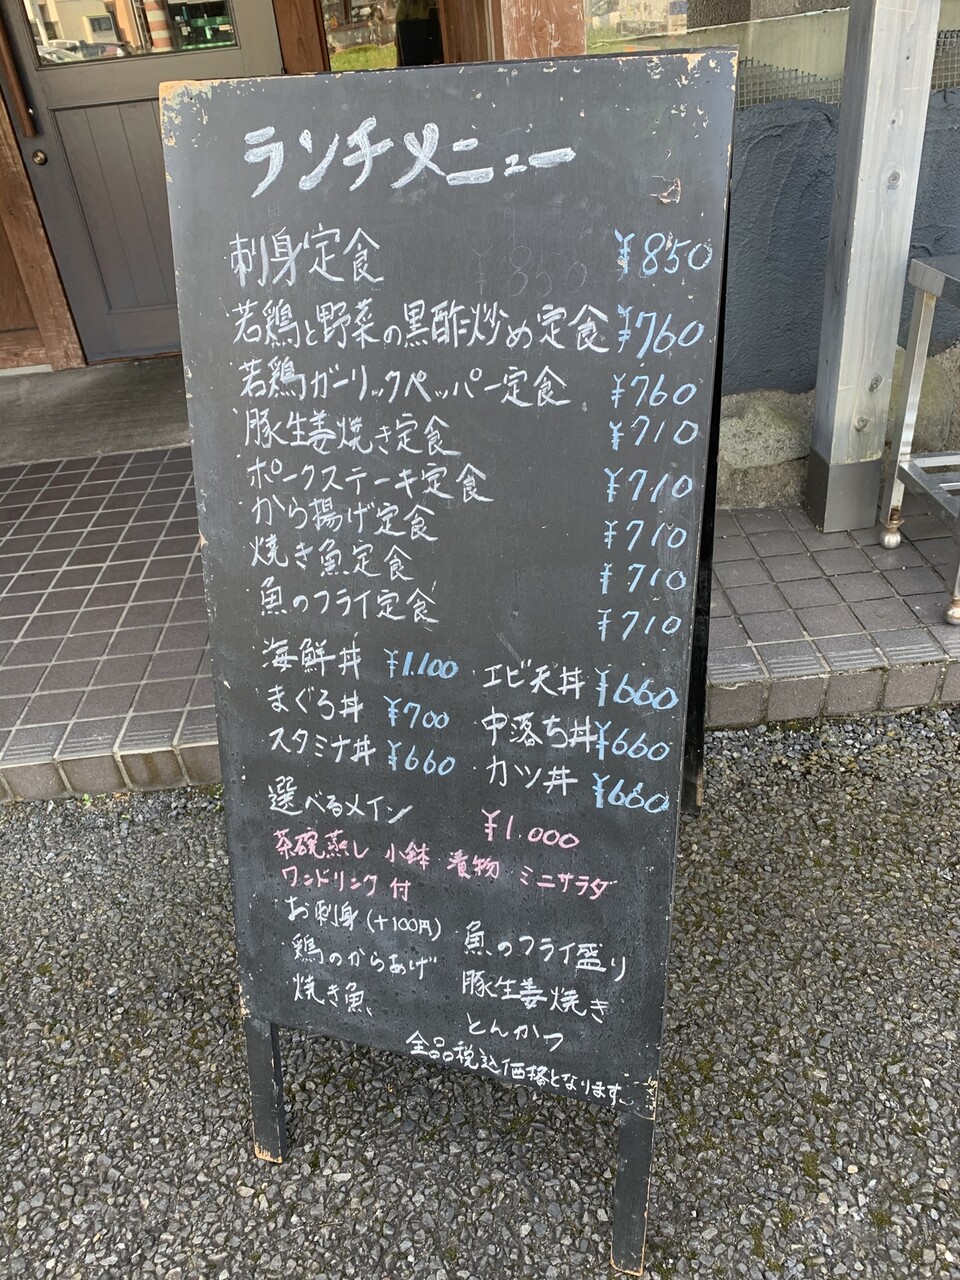 ランチメニュー
刺身定食 ¥850
若鶏と野菜の黒酢炒め定食 ¥760
若鶏ガーリックペッパー定食 ¥760
豚生姜焼き定食 ¥710
ポークステーキ定食 ¥710
から揚げ定食 ¥710
焼き魚定食 ¥710
魚のフライ定食 ¥710
海鮮丼 ¥1.100 エビ天丼 ¥660
まぐろ丼 ¥700 中落ち丼 ¥660
スタミナ丼 ¥660 カツ丼 ¥660
選べるメイン ¥1.000
茶碗蒸し 小鉢 漬物 ミニサラダ
ワンドリンク付
お刺身(+100円) 魚のフライ盛り
鶏のからあげ 豚生姜焼き
焼き魚 とんかつ
全品税込価格となります。